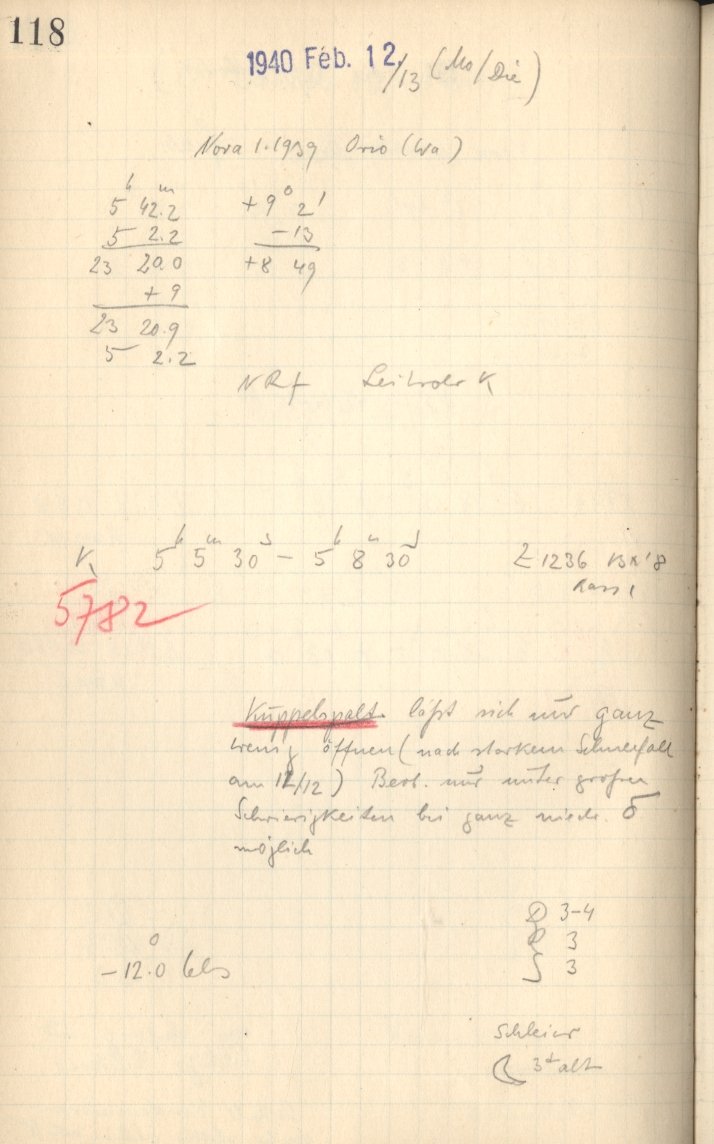 118
1940 Feb. 12/13 (Mo/Die)
Nova 1.1939 Orio (Wa)
5h 42.2m +9° 2'
5 2.2 -13
23 20.0 +8 49
+ 9
23 20.9
5 2.2
NRf K
K 5h 5m 30s - 5h 8m 30s Z 1236
5782
Kuppelspalt läßt sich nur ganz
wenig öffnen (nach starkem Schneefall
am 11/12) Beob. nur unter großen
Schwierigkeiten bei ganz niedr. δ
möglich
3-4
3
-12.0°
3
Schleier
☾ 3d alt